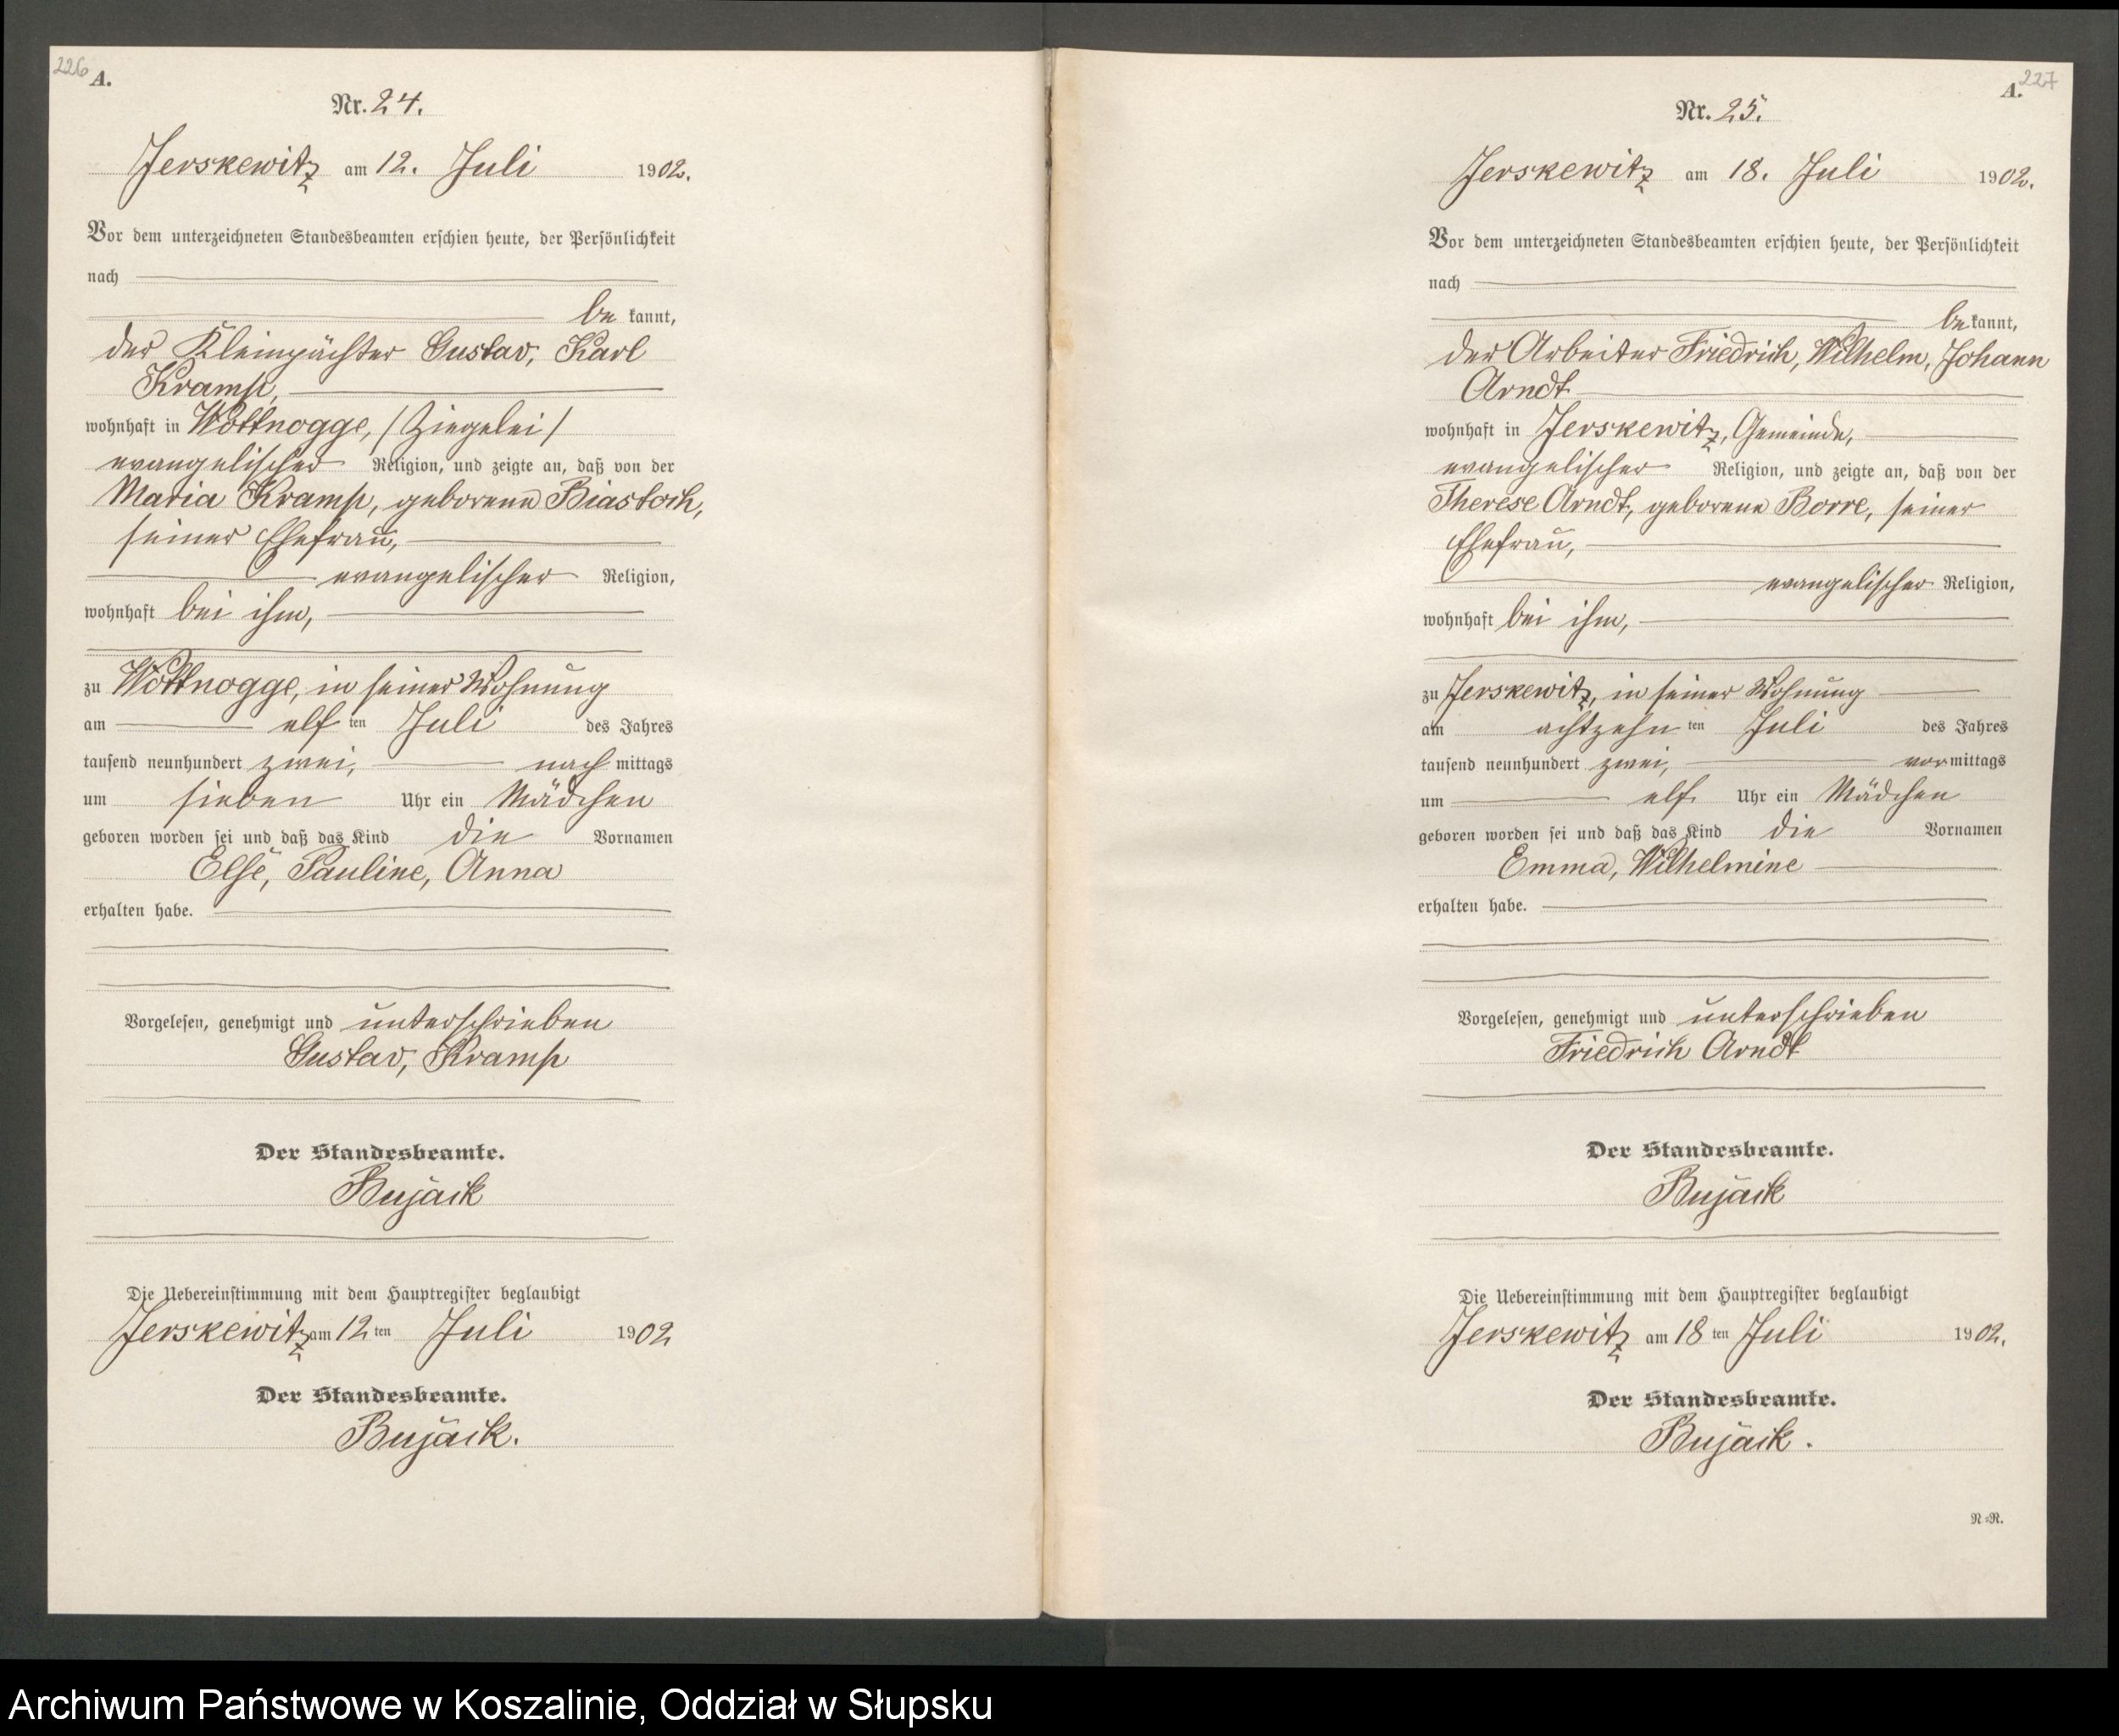 226 A.
Nr. 24.
Jerskewitz am 12. Juli 1902.
Vor dem unterzeichneten Standesbeamten erschien heute, der Persönlichkeit
nach
be kannt,
der Kleinpächter Gustav, Karl
Kramp,
wohnhaft in Wottnogge, /Ziegelei/
evangelischer Religion, und zeigte an, daß von der
Maria Kramp, geborene Biastoch,
seiner Ehefrau,
evangelischer Religion,
wohnhaft bei ihm,
zu Wottnogge, in seiner Wohnung
am elf ten Juli des Jahres
tausend neunhundert zwei, nach mittags
um sieben Uhr ein Mädchen
geboren worden sei und daß das Kind die Vornamen
Else, Pauline, Anna
erhalten habe.
Vorgelesen, genehmigt und unterschrieben
Gustav, Kramp
Der Standesbeamte.
Bujack
Die Uebereinstimmung mit dem Hauptregister beglaubigt
Jerskewitz am 12 ten Juli 1902
Der Standesbeamte.
Bujack.
A. 227
Nr. 25.
Jerskewitz am 18. Juli 1902.
Vor dem unterzeichneten Standesbeamten erschien heute, der Persönlichkeit
nach
be kannt,
der Arbeiter Friedrich, Wilhelm, Johann
Arndt
wohnhaft in Jerskewitz, Gemeinde,
evangelischer Religion, und zeigte an, daß von der
Therese Arndt, geborene Borre, seiner
Ehefrau,
evangelischer Religion,
wohnhaft bei ihm,
zu Jerskewitz, in seiner Wohnung
am achtzehn ten Juli des Jahres
tausend neunhundert zwei, vor mittags
um elf Uhr ein Mädchen
geboren worden sei und daß das Kind die Vornamen
Emma, Wilhelmine
erhalten habe.
Vorgelesen, genehmigt und unterschrieben
Friedrich Arndt
Der Standesbeamte.
Bujack
Die Uebereinstimmung mit dem Hauptregister beglaubigt
Jerskewitz am 18 ten Juli 1902.
Der Standesbeamte.
Bujack.
N=R.
Archiwum Państwowe w Koszalinie, Oddział w Słupsku